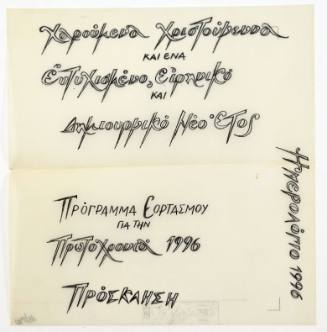 Χαρούμενα Χριστούγεννα
ΚΑΙ ΕΝΑ
Ευτυχισμένο, Ειρηνικό
ΚΑΙ
Δημιουργικό Νέο Έτος
ΠΡΟΓΡΑΜΜΑ ΕΟΡΤΑΣΜΟΥ
ΓΙΑ ΤΗΝ
Πρωτοχρονιά 1996
ΠΡΟΣΚΛΗΣΗ
Ημερολόγιο 1996